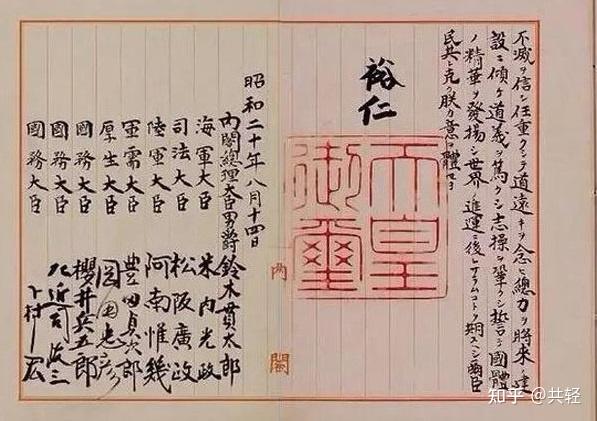 不滅ヲ信シ任重クシテ道遠キヲ念ヒ總力ヲ將來ノ建
設ニ傾ケ道義ヲ篤クシ志操ヲ鞏クシ誓テ國體
ノ精華ヲ發揚シ世界ノ進運ニ後レサラムコトヲ期スヘシ爾臣
民其レ克ク朕カ意ヲ體セヨ
裕仁
天皇
御璽
内閣
昭和二十年八月十四日
內閣總理大臣男爵 鈴木貫太郎
海軍大臣 米内光政
司法大臣 松阪廣政
陸軍大臣 阿南惟幾
軍需大臣 豊田貞次郎
厚生大臣 岡田忠彦
國務大臣 櫻井兵五郎
國務大臣 左近司政三
國務大臣 下村宏
知乎 @共轻